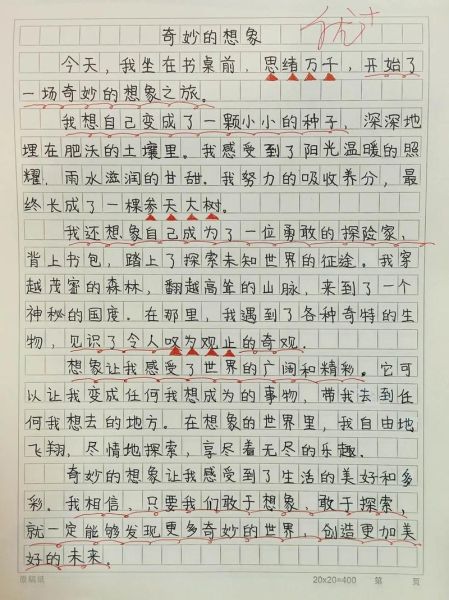 优+
奇妙的想象
今天，我坐在书桌前，思绪万千，开始了
一场奇妙的想象之旅。
我想自己变成了一颗小小的种子，深深地
埋在肥沃的土壤里。我感受到了阳光温暖的照
耀，雨水滋润的甘甜。我努力的吸收养分，最
终长成了一棵参天大树。
我还想象自己成为了一位勇敢的探险家，
背上书包，踏上了探索未知世界的征途。我穿
越茂密的森林，翻越高耸的山脉，来到了一个
神秘的国度。在那里，我遇到了各种奇特的生
物，见识了令人叹为观止的奇观。
想象让我感受了世界的广阔和精彩。它可
以让我变成任何我想成为的事物，带我去到任
何我想去的地方。在想象的世界里，我自由地
飞翔，尽情地探索，享尽着无尽的乐趣。
奇妙的想象让我感受到了生活的美好和多
彩。我相信，只要我们敢于想象，敢于探索，
就一定能够发现更多奇妙的世界，创造更加美
好的未来。
原稿纸 20x20=400 第 页